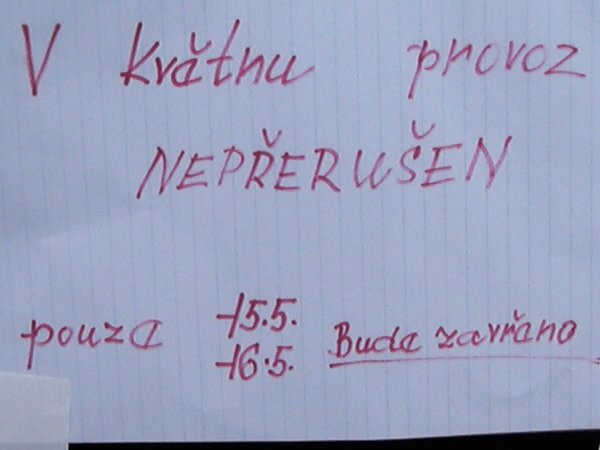 V květnu provoz
NEPŘERUŠEN
pouze 15.5.
16.5. Bude zavřeno